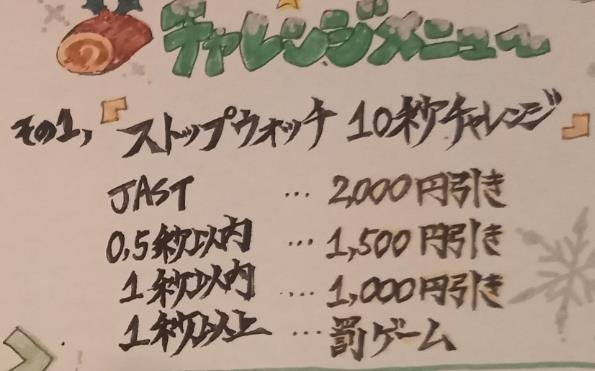 チャレンジメニュー
その1、『ストップウォッチ 10秒チャレンジ』
JAST … 2,000円引き
0.5秒以内 … 1,500円引き
1秒以内 … 1,000円引き
1秒以上 … 罰ゲーム